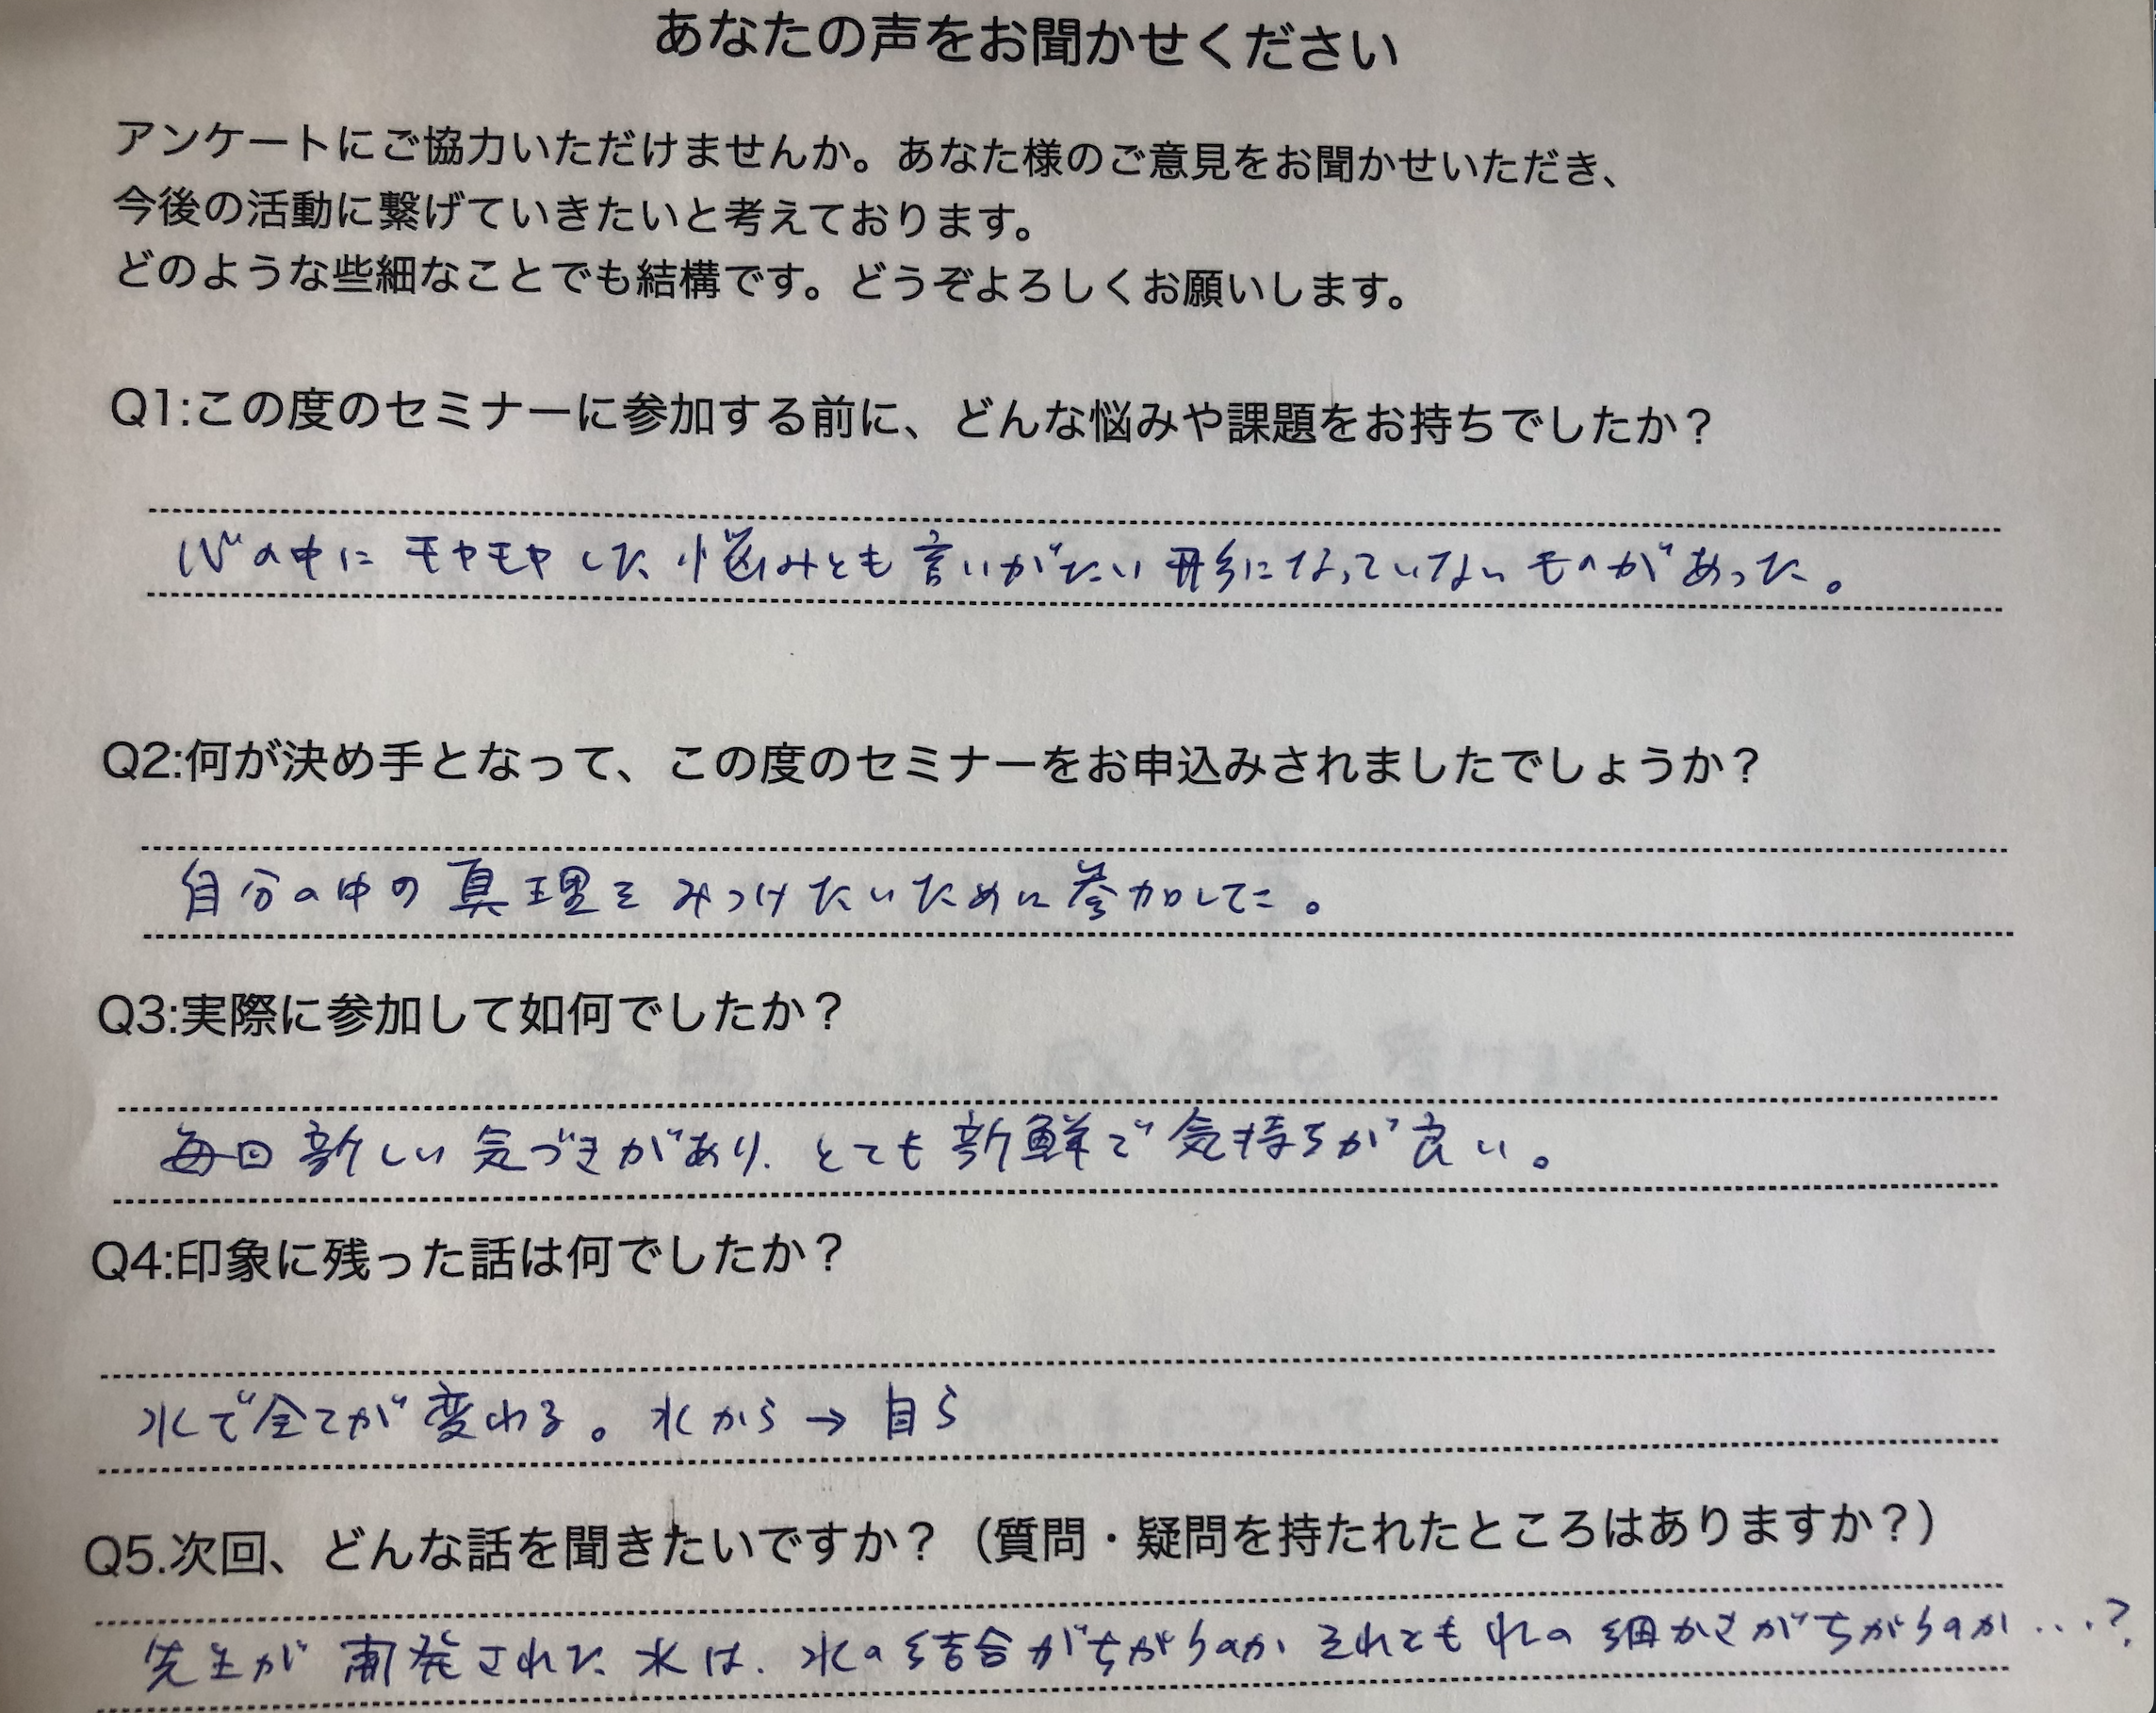 あなたの声をお聞かせください
アンケートにご協力いただけませんか。あなた様のご意見をお聞かせいただき、
今後の活動に繋げていきたいと考えております。
どのような些細なことでも結構です。どうぞよろしくお願いします。
Q1:この度のセミナーに参加する前に、どんな悩みや課題をお持ちでしたか？
心の中にモヤモヤした悩みとも言いがたい形になっていないものがあった。
Q2:何が決め手となって、この度のセミナーをお申込みされましたでしょうか？
自分の中の真理をみつけたいために参加した。
Q3:実際に参加して如何でしたか？
毎回新しい気づきがあり、とても新鮮で気持ちが良い。
Q4:印象に残った話は何でしたか？
水で全てが変わる。水から→自ら
Q5.次回、どんな話を聞きたいですか？（質問・疑問を持たれたところはありますか？）
先生が開発された水は、水の結合がちがうのか それとも水の細かさがちがうのか…?